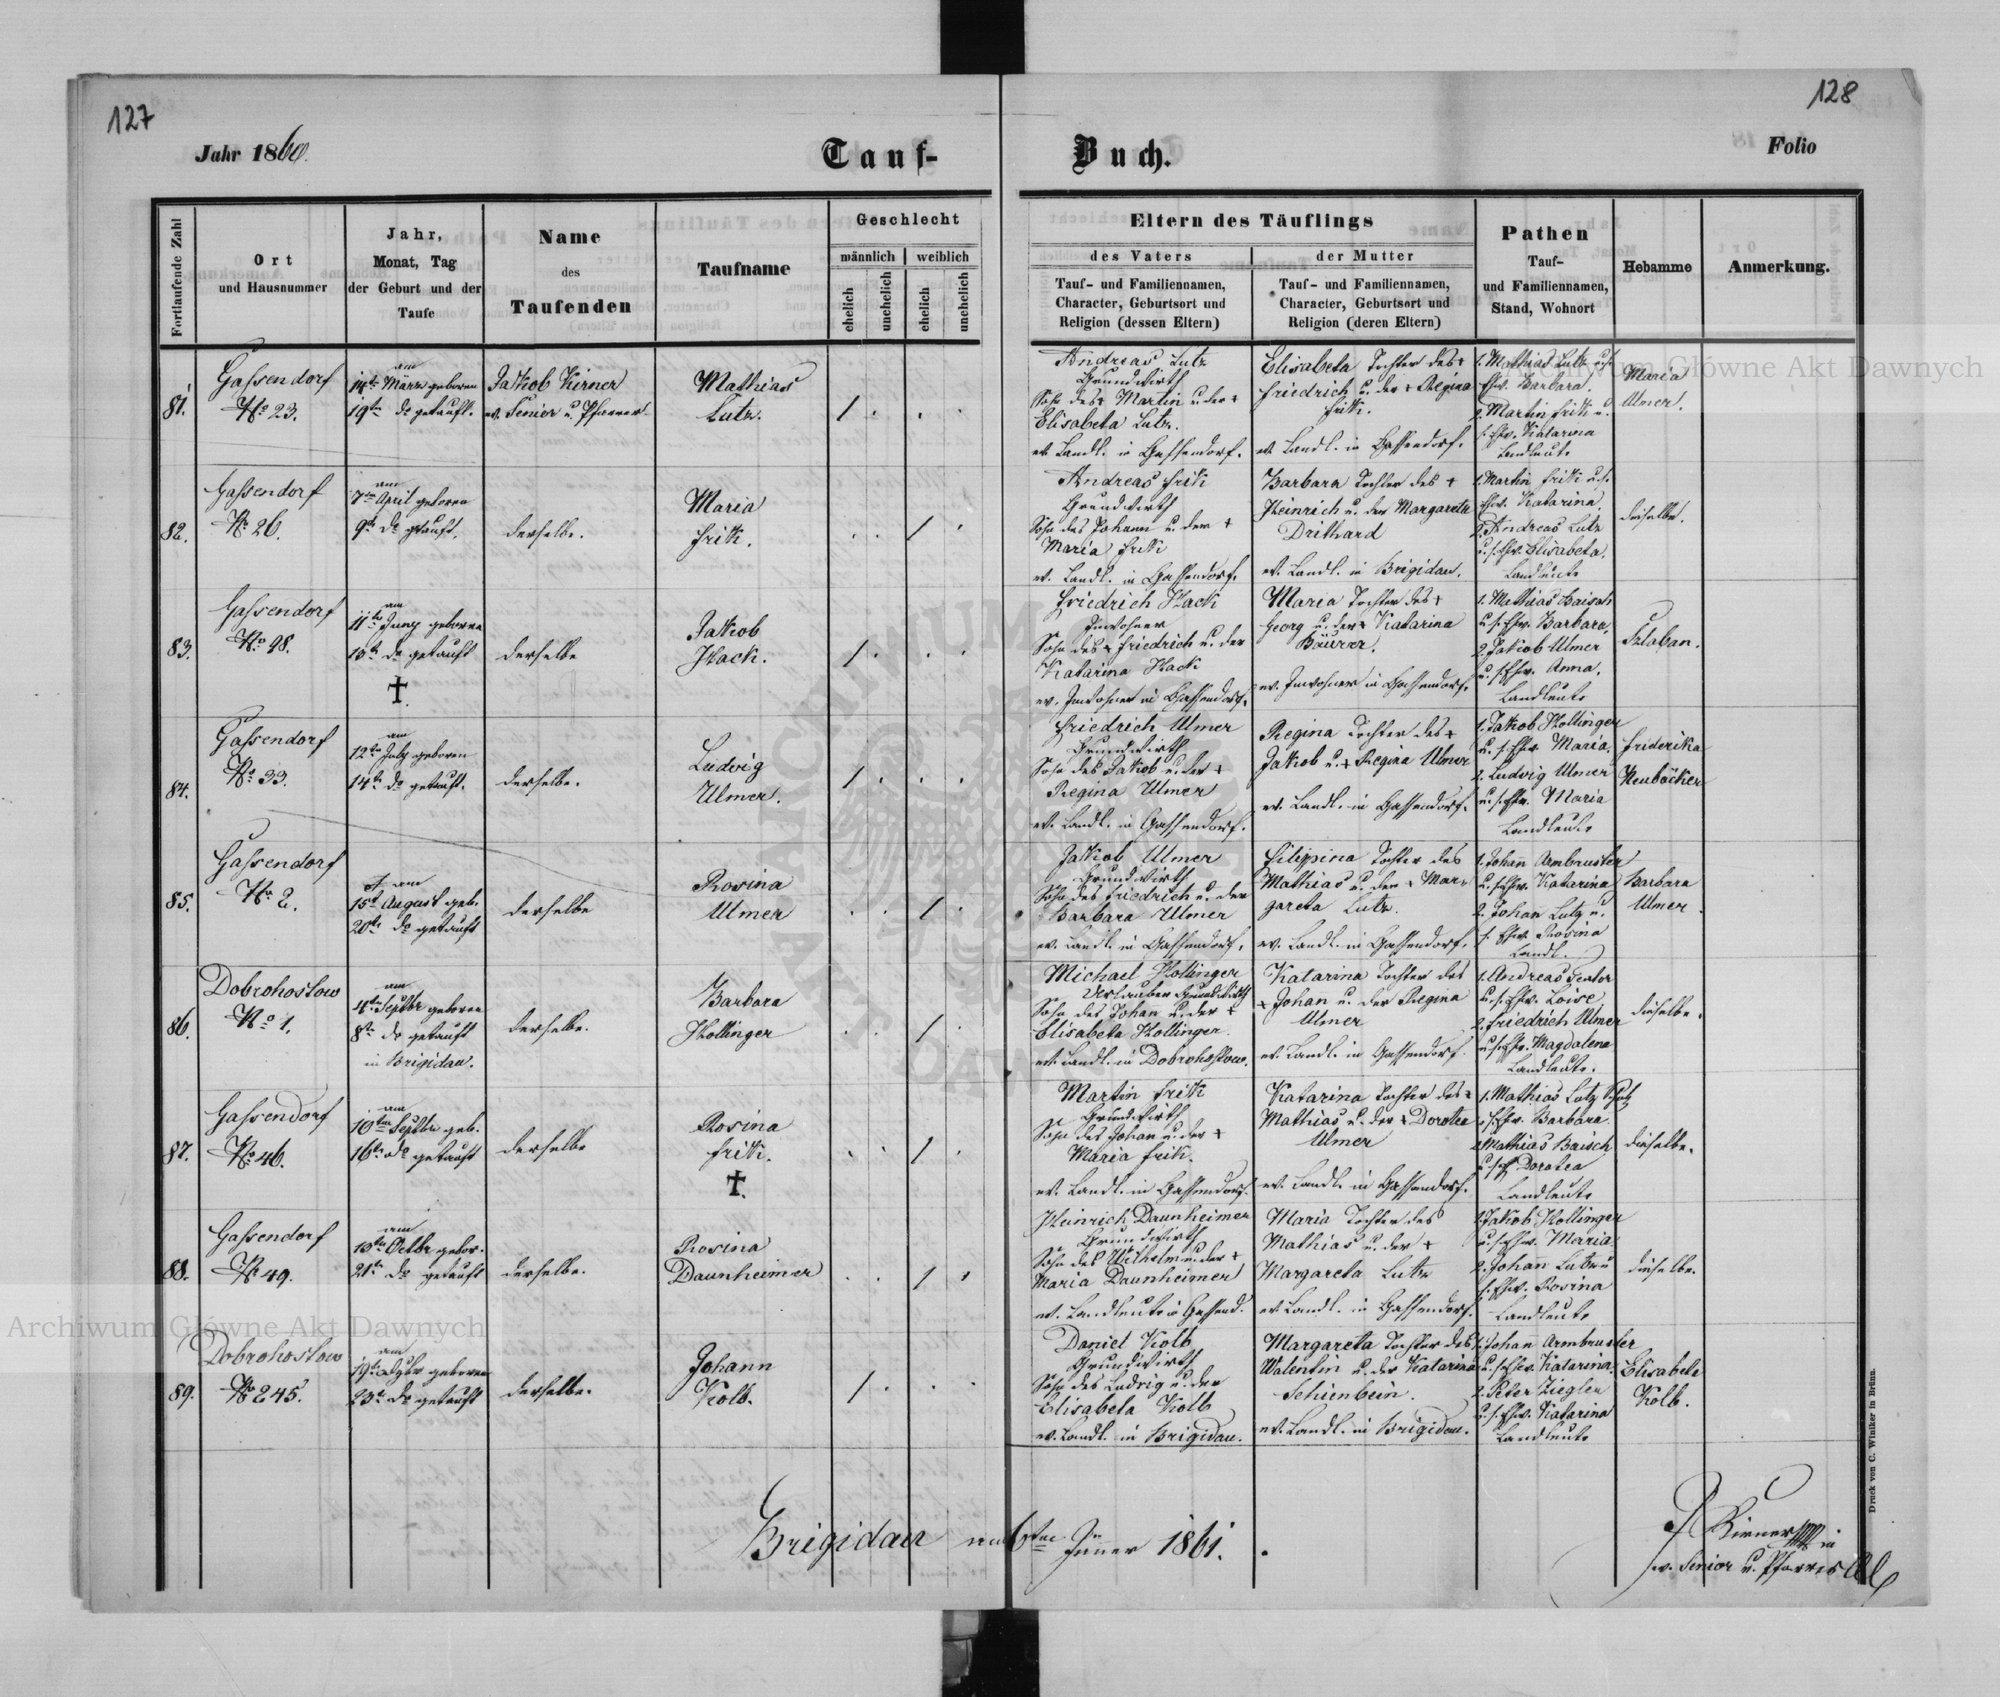 127
128
Jahr 1860.
Tauf-
Buch.
Folio
Fortlaufende Zahl
Ort
und Hausnummer
Jahr,
Monat, Tag
der Geburt und der
Taufe
Name
des
Taufenden
Taufname
Geschlecht
männlich
weiblich
ehelich
unehelich
ehelich
unehelich
Eltern des Täuflings
des Vaters
der Mutter
Tauf- und Familiennamen,
Character, Geburtsort und
Religion (dessen Eltern)
Tauf- und Familiennamen,
Character, Geburtsort und
Religion (deren Eltern)
Pathen
Tauf-
und Familiennamen,
Stand, Wohnort
Hebamme
Anmerkung.
81.
Gassendorf
No 23.
am
14te März geboren
19ten do getauft.
Jakob Kirner
ev. Senior u. Pfarrer
Mathias
Lutz.
Andreas Lutz
Grundwirth
Sohn des + Martin u. der +
Elisabeta Lutz.
ev. Landl. in Gassendorf.
Elisabeta Tochter des +
Friedrich u. der + Regina
Frik.
ev. Landl. in Gassendorf.
1. Mathias Lutz u. s.
Ehw. Barbara.
2. Martin Frik u.
s. Ehw. Katarina
Landleute
Maria
Ulmer.
82.
Gassendorf
No 26.
am
7ten April geboren
9te do getauft.
derselbe.
Maria
Frik.
Andreas Frik
Grundwirth
Sohn des Johann u. der +
Maria Frik
ev. Landl. in Gassendorf.
Barbara Tochter des +
Heinrich u. der Margareta
Drithard
ev. Landl. in Brigidau.
1. Martin Frik u. s.
Ehw. Katarina.
2. Andreas Lutz
u. s. Ehw. Elisabeta.
Landleute
dieselbe.
83.
Gassendorf
No 98.
am
11te Juny geboren
13te do getauft
+
derselbe
Jakob
Hack.
Friedrich Hack
Inwohner
Sohn des + Friedrich u. der
Katarina Hack
ev. Inwohner in Gassendorf.
Maria Tochter des +
Georg u. der + Katarina
Bäurer.
ev. Inwohner in Gassendorf.
1. Mathias Baisch
u. s. Ehw. Barbara,
2. Jakob Ulmer
u. s. Ehw. Anna.
Landleute
84.
Gassendorf
No 33.
am
12ten July geboren
14te do getauft.
derselbe.
Ludwig
Ulmer.
Friedrich Ulmer
Grundwirth
Sohn des Jakob u. der +
Regina Ulmer
ev. Landl. in Gassendorf.
Regina Tochter des +
Jakob u. + Regina Ulmer
ev. Landl. in Gassendorf.
1. Jakob Hollinger
u. s. Ehw. Maria.
2. Ludwig Ulmer
u. s. Ehw. Maria
Landleute
Friderika
Neubäcker
85.
Gassendorf
No 2.
am
15t August geb.
20te do getauft
derselbe
Rosina
Ulmer
Jakob Ulmer
Grundwirth
Sohn des Friedrich u. der
Barbara Ulmer
ev. Landl. in Gassendorf.
Filippina Tochter des
Mathias u. der + Mar-
gareta Lutz.
ev. Landl. in Gassendorf.
1. Johan Armbruster
u. s. Ehw. Katarina
2. Johan Lutz u.
s. Ehw. Rosina
Landl.
Barbara
Ulmer.
86.
Dobrohostow
No 1.
am
4ten Septbr geboren
8te do getauft
in Brigidau.
derselbe.
Barbara
Hollinger
Michael Hollinger
Urlauber Grundwirth
Sohn des Johan u. der +
Elisabeta Hollinger.
ev. Landl. in Dobrohostow.
Katarina Tochter des
+ Johan u. der Regina
Ulmer
ev. Landl. in Gassendorf.
1. Andreas
u. s. Ehw. Loise
2. Friedrich Ulmer
u. s. Ehw. Magdalena
Landleute.
dieselbe.
87.
Gassendorf
No 46.
am
10ten Septbr geb.
16te do getauft
derselbe
Rosina
Frik.
+.
Martin Frik
Grundwirth
Sohn des Johan u. der +
Maria Frik.
ev. Landl. in Gassendorf.
Katarina Tochter des +
Mathias u. der + Dorotea
Ulmer
ev. Landl. in Gassendorf.
1. Mathias Lutz
s. Ehw. Barbara.
2. Mathias Baisch
Dorotea
Landleute
dieselbe.
88.
Gassendorf
No 49.
am
13ten Octbr gebor.
21te do getauft
derselbe.
Rosina
Daunheimer
Heinrich Daunheimer
Grundwirth
Sohn des Wilhelm u. der +
Maria Daunheimer
ev. Landleute in Gassend.
Maria Tochter des
Mathias u. der +
Margareta Lutz
ev. Landl. in Gassendorf.
1. Jakob Hollinger
u. s. Ehw. Maria.
2. Johann Lutz u
s. Ehw. Rosina
Landleute
dieselbe.
89.
Dobrohostow
No 245.
am
geboren
23te do getauft
derselbe.
Johann
Kolb.
Daniel Kolb
Grundwirth
Sohn des Ludwig u. der
Elisabeta Kolb
ev. Landl. in Brigidau.
Margareta Tochter des
Walentin u. der Katarina
Schienbein.
ev. Landl. in Brigidau.
1. Johan Armbruster
u. s. Ehw. Katarina.
2. Peter Ziegler
u. s. Ehw. Katarina
Landleute
Elisabeta
Kolb.
Brigidau am 6ten Jänner 1861.
J Kirner
ev. Senior u. Pfarrer
Druck von C. Winiker in Brünn.
Archiwum Główne Akt Dawnych
Archiwum Główne Akt Dawnych